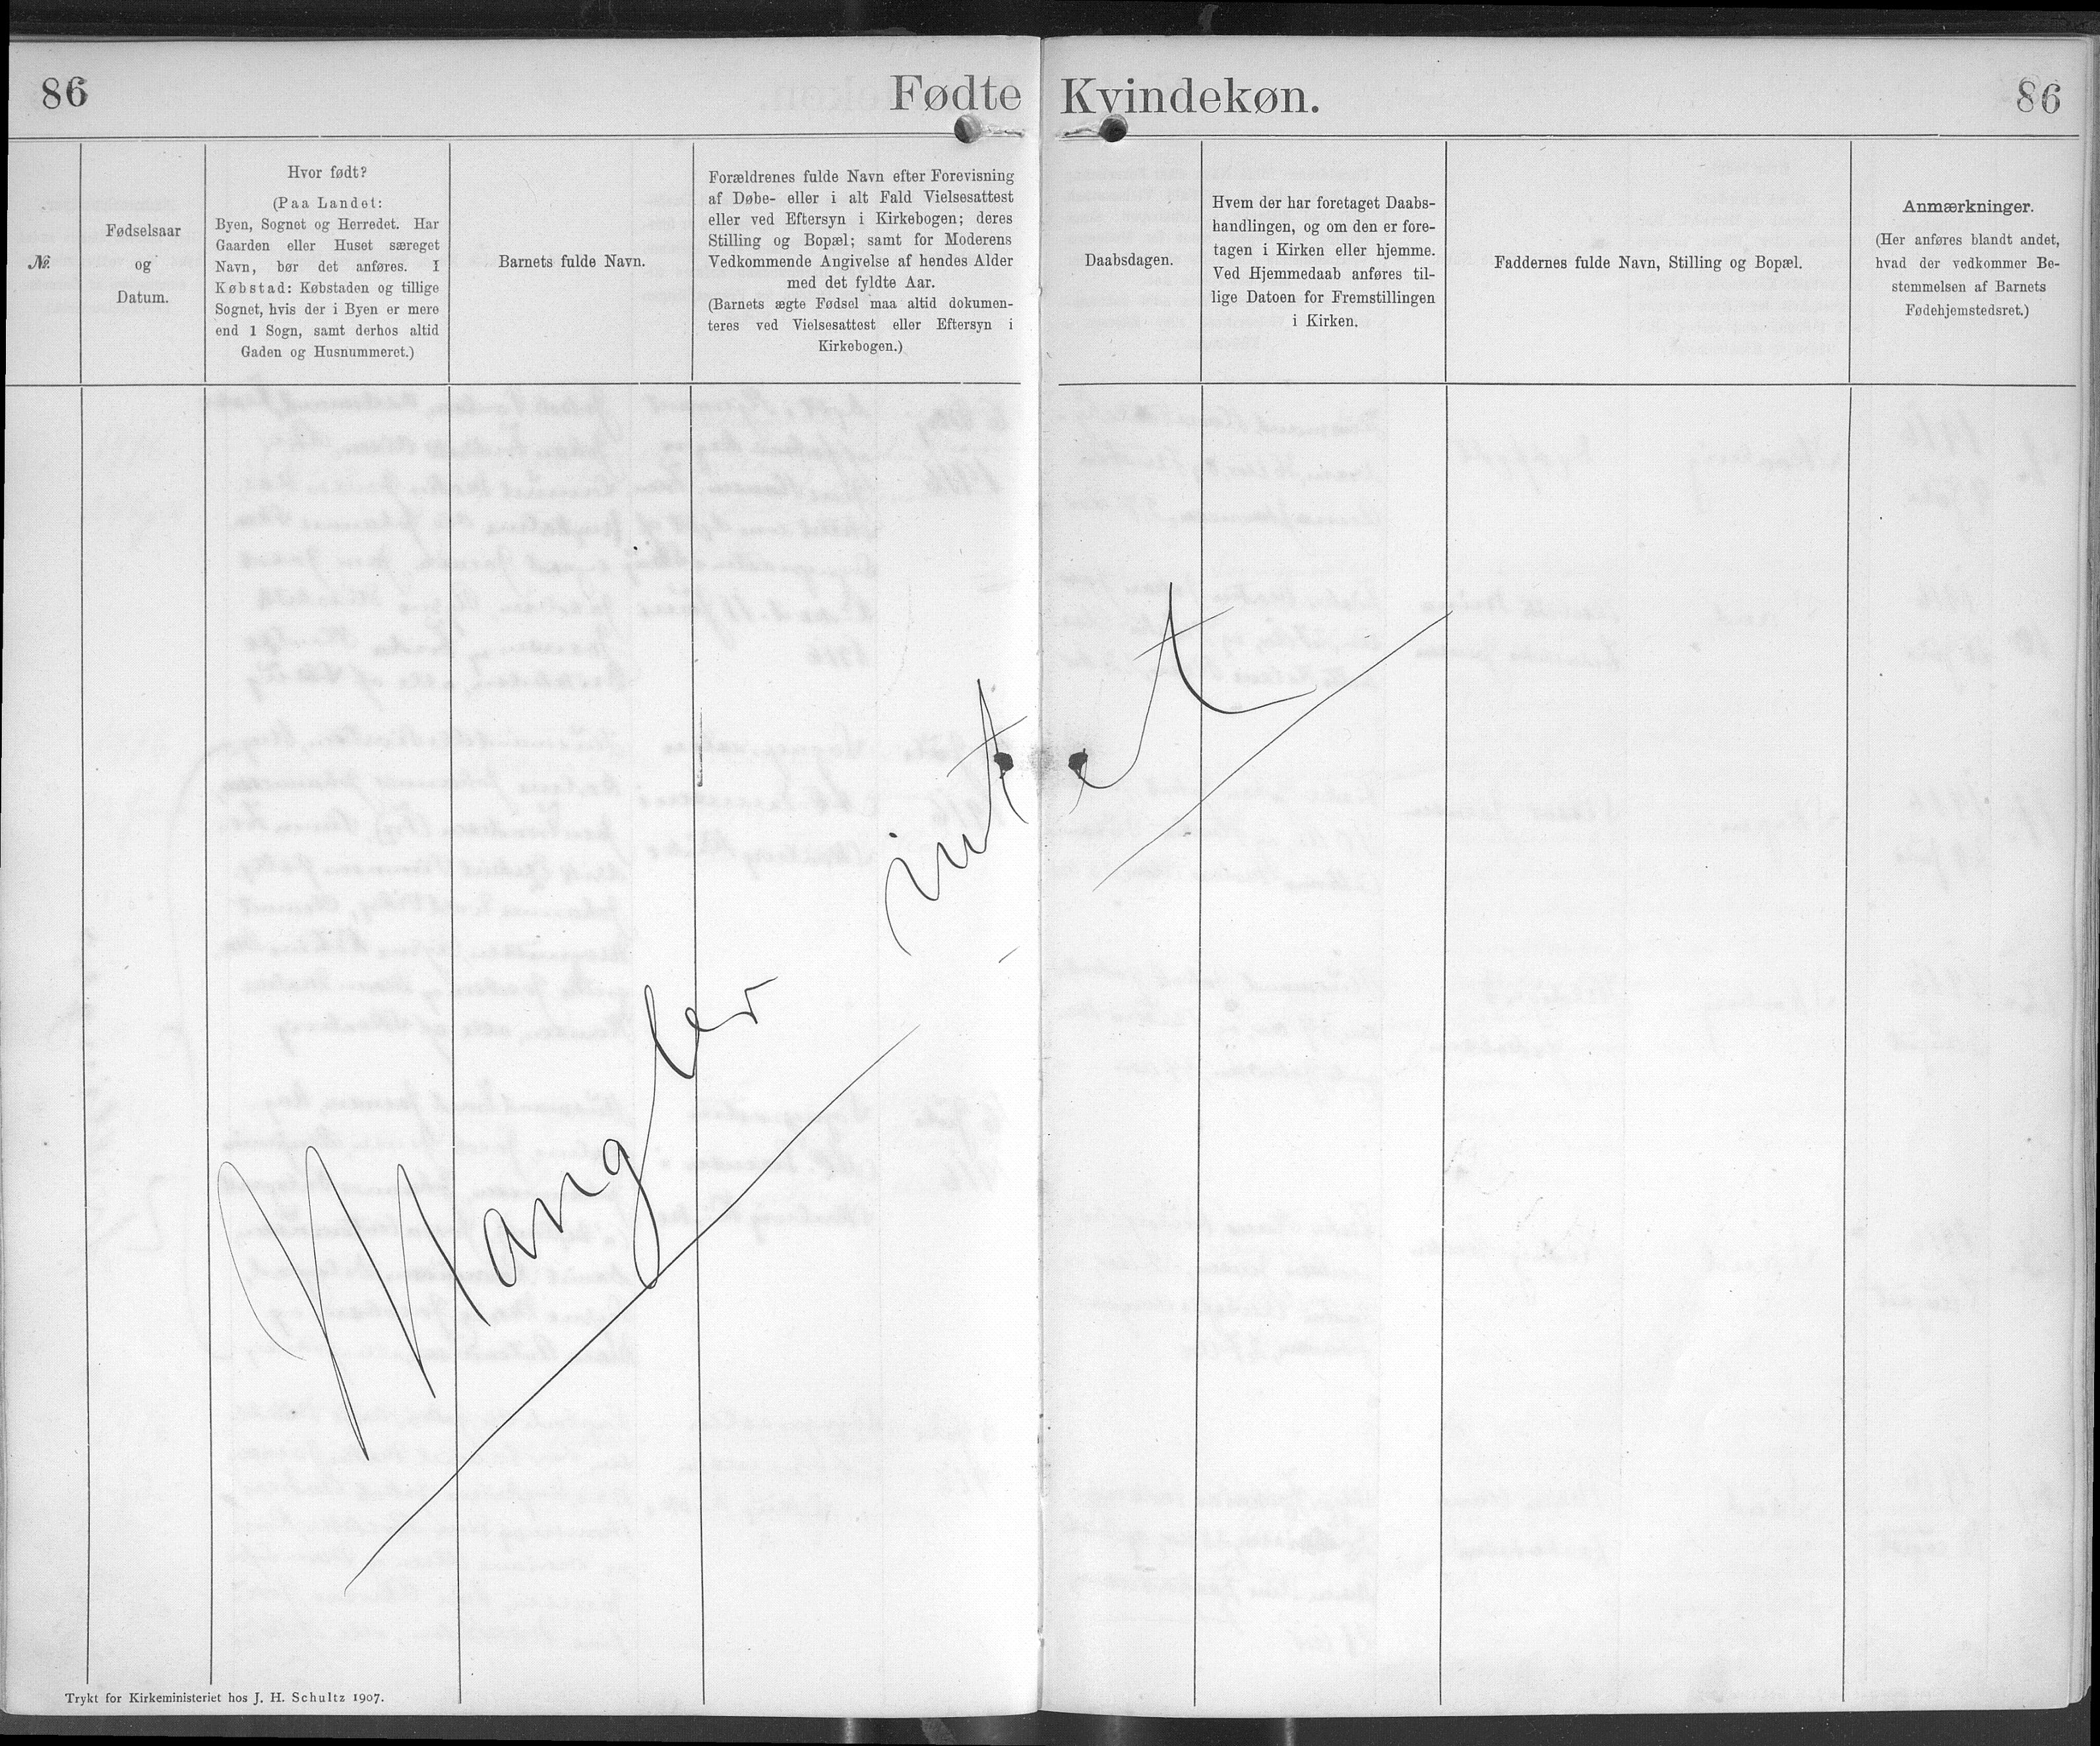 86
Fødte
Kvindekøn.
86
№.
Fødselsaar
og
Datum.
Hvor født?
(Paa Landet:
Byen, Sognet og Herredet. Har
Gaarden eller Huset særeget
Navn, bør det anføres. I
Købstad: Købstaden og tillige
Sognet, hvis der i Byen er mere
end 1 Sogn, samt derhos altid
Gaden og Husnummeret.)
Barnets fulde Navn.
Forældrenes fulde Navn efter Forevisning
af Døbe- eller i alt Fald Vielsesattest
eller ved Eftersyn i Kirkebogen; deres
Stilling og Bopæl; samt for Moderens
Vedkommende Angivelse af hendes Alder
med det fyldte Aar.
(Barnets ægte Fødsel maa altid dokumen-
teres ved Vielsesattest eller Eftersyn i
Kirkebogen.)
Daabsdagen.
Hvem der har foretaget Daabs-
handlingen, og om den er fore-
tagen i Kirken eller hjemme.
Ved Hjemmedaab anføres til-
lige Datoen for Fremstillingen
i Kirken.
Faddernes fulde Navn, Stilling og Bopæl.
Anmærkninger.
(Her anføres blandt andet,
hvad der vedkommer Be-
stemmelsen af Barnets
Fødehjemstedsret.)
Mangler intet
Trykt for Kirkeministeriet hos J. H. Schultz 1907.